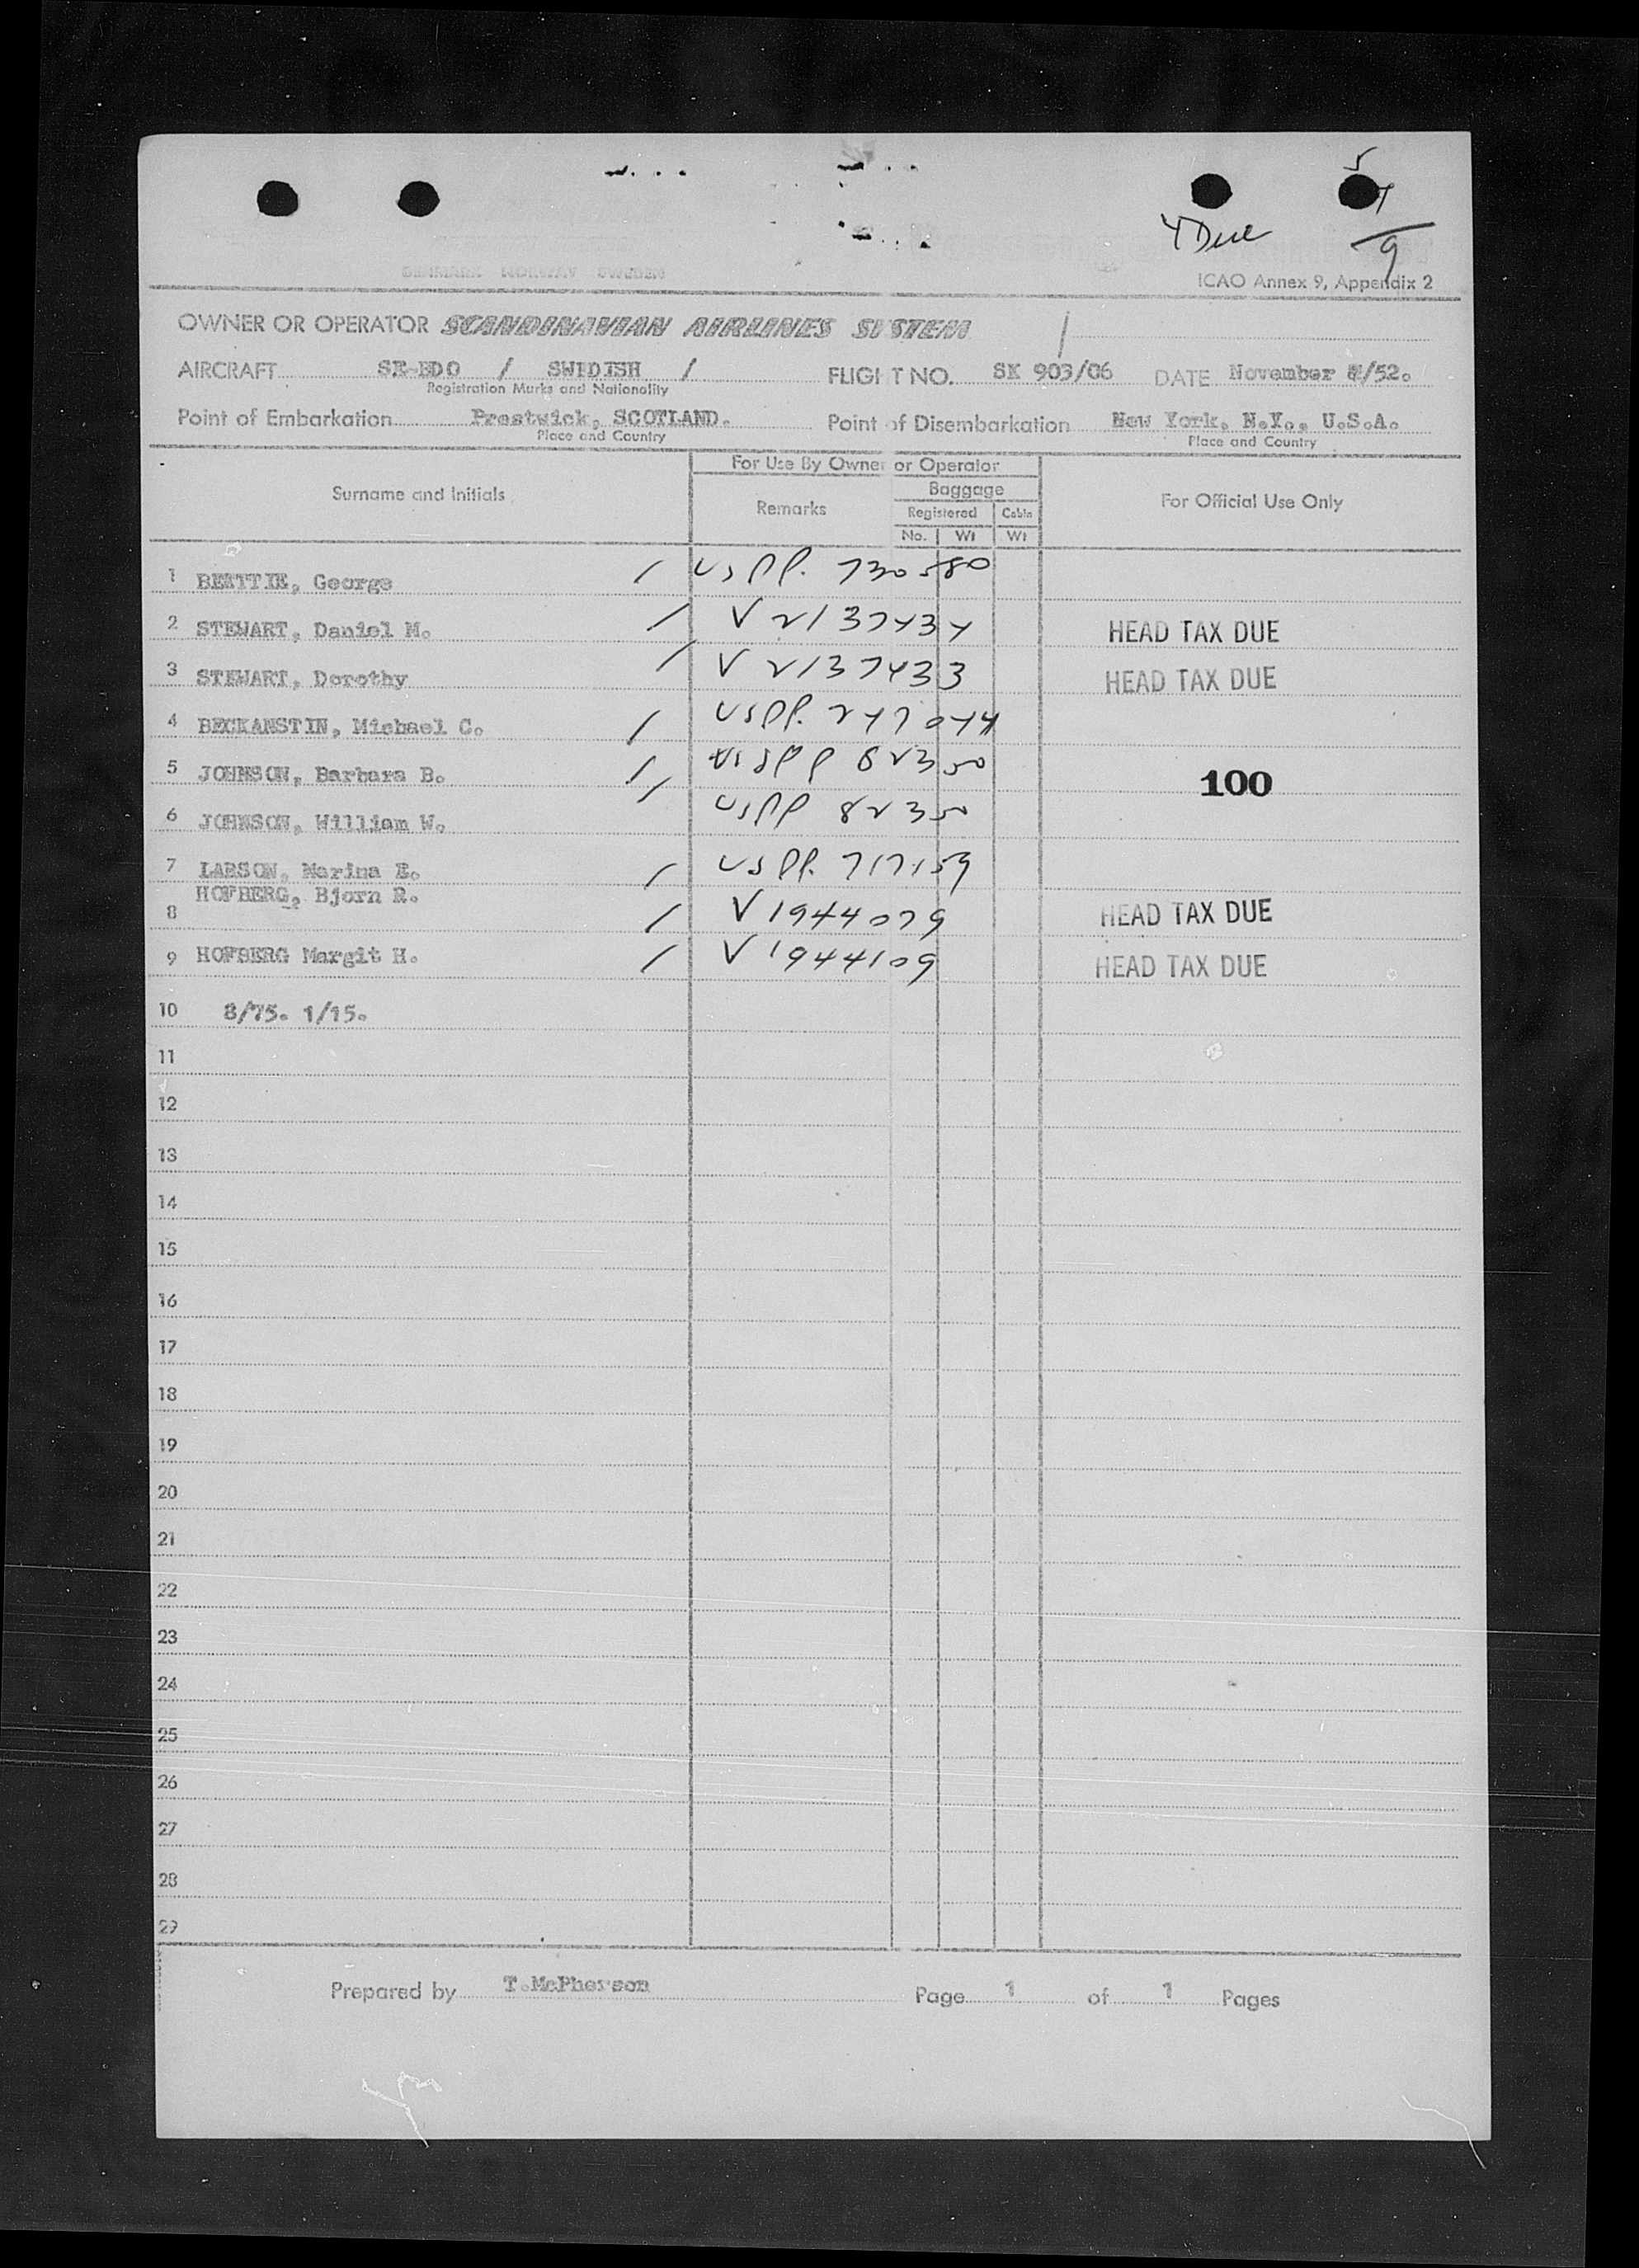 5
4
4 Due
9
DENMARK NORWAY SWEDEN
ICAO Annex 9, Appendix 2
OWNER OR OPERATOR SCANDINAVIAN AIRLINES SYSTEM
AIRCRAFT SE-BDO / SWEDISH / FLIGHT NO. SK 903/06 DATE November /52.
Registration Marks and Nationality
Point of Embarkation Prestwick, SCOTLAND. Point of Disembarkation New York, N.Y., U.S.A.
Place and Country Place and Country
For Use By Owner or Operator
Surname and Initials Remarks Baggage For Official Use Only
Registered Cabin
No. Wt Wt
1 BEATTIE, George / USPP. 730580
2 STEWART, Daniel M. / V 2137434 HEAD TAX DUE
3 STEWART, Dorothy / V 2137433 HEAD TAX DUE
4 BECKANSTIN, Michael C. / USPP. 247044
5 JOHNSON, Barbara B. / USPP 82350 100
6 JOHNSON, William W. / USPP 82350
7 LARSON, Marina E. / USPP. 717159
8 HOFBERG, Bjorn R. / V 1944079 HEAD TAX DUE
9 HOFBERG Margit H. / V 1944109 HEAD TAX DUE
10 8/75. 1/15.
11
12
13
14
15
16
17
18
19
20
21
22
23
24
25
26
27
28
29
Prepared by T.McPherson Page 1 of 1 Pages